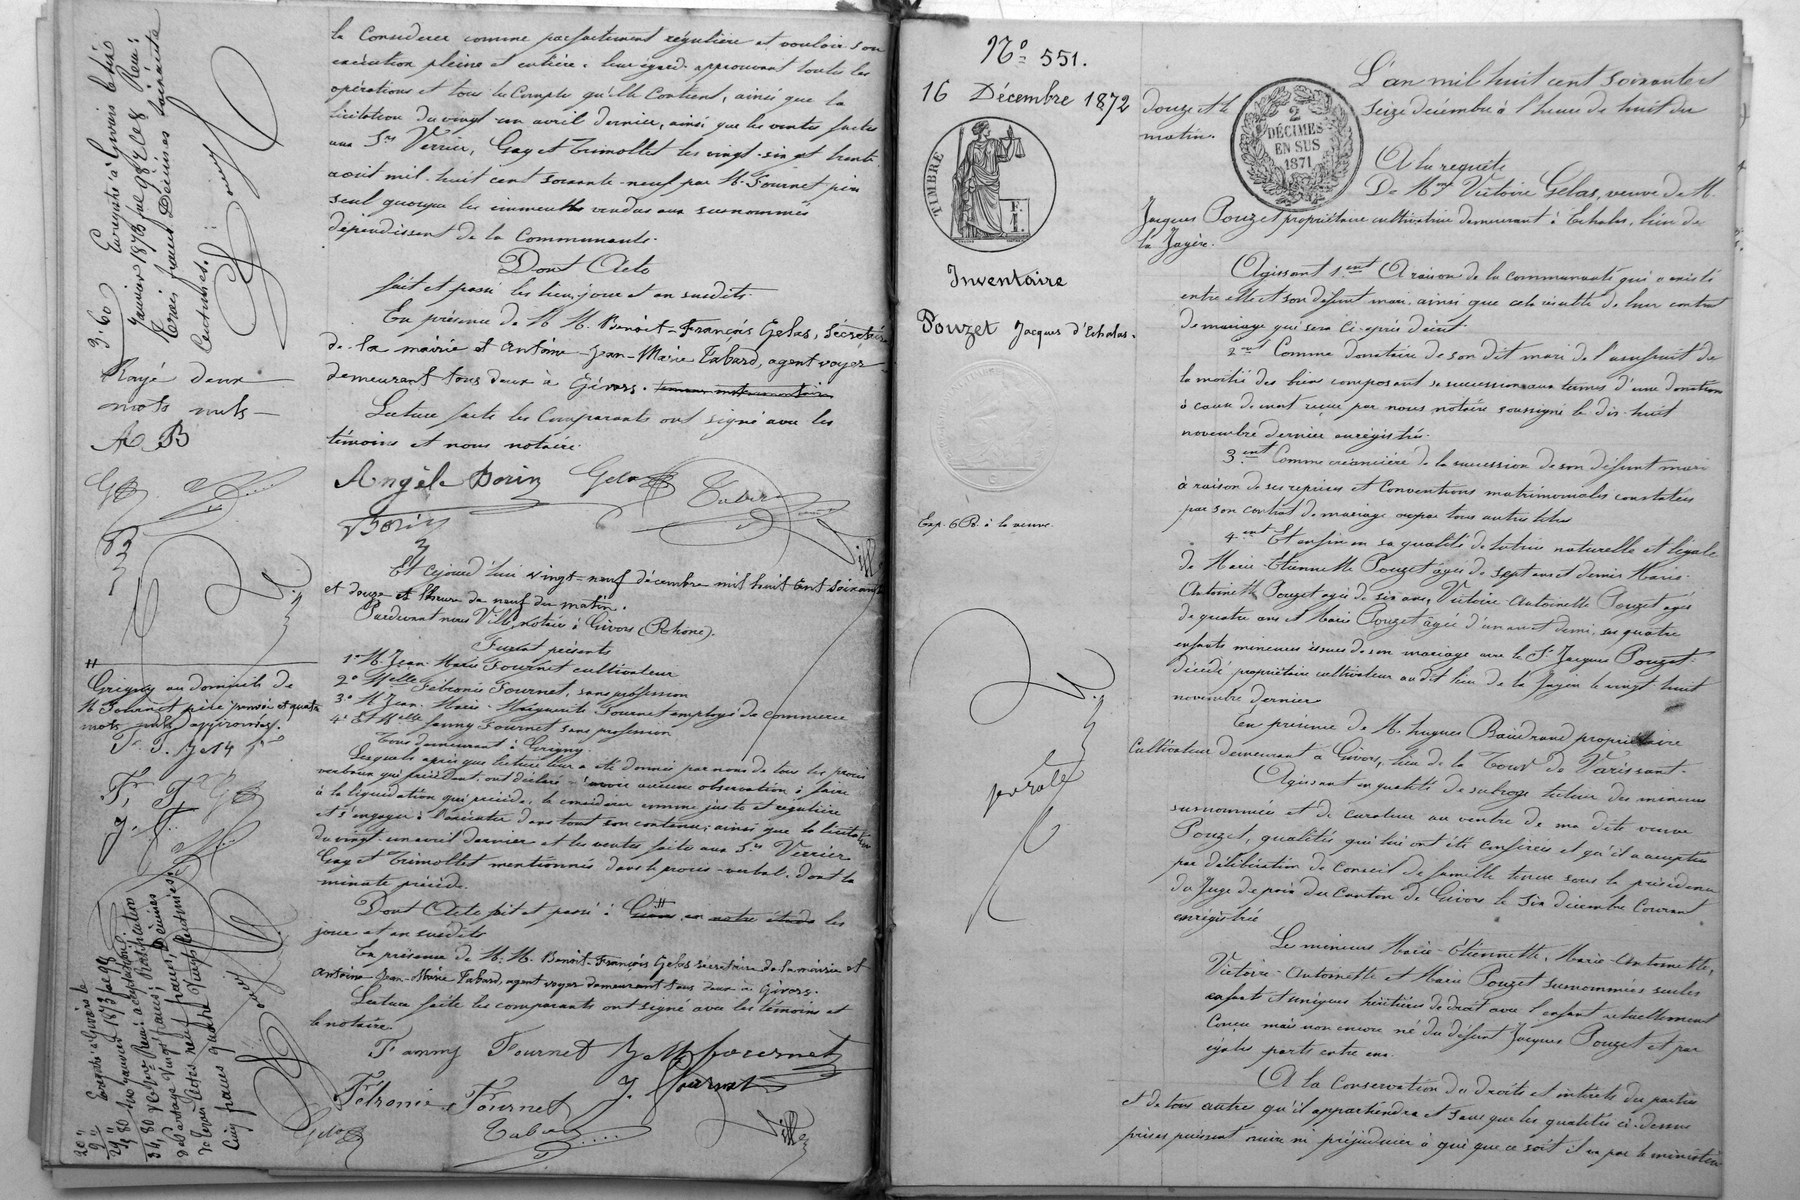 la Considérer comme parfaitement régulière et vouloir son
exécution pleine et entière à leur égard approuvant toutes les
opérations et tous les Comptes qu'elle Contient, ainsi que la
licitation du vingt-un avril dernier, ainsi que les ventes faites
aux Srs Verrier, Gay et Trimollet les vingt-six et trente
août mil-huit cent soixante-neuf par M. Fournet père
seul quoique les immeubles vendus aux susnommés
dépendissent de la Communauté.
Dont Acte
fait et passé les lieu, jour et an susdits.
En présence de M. M. Benoit-François Gelas, Secrétaire
de la mairie et Antoine-Jean-Marie Tabard, agent voyer
demeurant tous deux à Givors.
Lecture faite les Comparants ont signé avec les
témoins et nous notaire.
Angèle Borin Gelas Tabard
Borin Ville
Et Cejourd'hui vingt-neuf décembre mil huit cent soixante
et douze et l'heure de neuf du matin.
Pardevant nous Ville, notaire à Givors (Rhône).
Furent présents
1° M. Jean-Marie Fournet cultivateur
2° Melle Fébronie Fournet, sans profession
3° M Jean-Marie-Marguerite Fournet employé de commerce
4° Et Melle Fanny Fournet sans profession
Tous demeurant à Grigny.
Lesquels après que lecture leur a été donnée par nous de tous les procès
verbaux qui précèdent, ont déclaré n'avoir aucune observation à faire
à la liquidation qui précède, la considérer comme juste et régulière
et s'engager à l'exécuter dans tout son contenu; ainsi que la licitation
du vingt-un avril dernier et les ventes faites aux Srs Verrier
Gay et Trimollet mentionnés dans le procès-verbal dont la
minute précède.
Dont Acte fait et passé à Givors en notre étude les
jour et an susdits
En présence de M. M. Benoit-François Gelas secrétaire de la mairie et
Antoine-Jean-Marie Tabard, agent voyer demeurant tous deux à Givors.
Lecture faite les comparants ont signé avec les témoins et
le notaire.
Fanny Fournet J M M Fournet
Fébronie Fournet J. Fournet
Gelas Tabard Ville
3,60 Enregistré à Givors le
janvier 1873
Trois francs Décimes soixante
Centimes.
Rayé deux
mots nuls
A B
Grigny au domicile de
M Fournet père renvoi et quatre
mots nuls approuvés.
F. F. J M
Enregistré à Givors le
janvier 1873
Cinq francs quatre vingt centimes
N° 551.
16 Décembre 1872
TIMBRE
F.
I.
Inventaire
Pouzet Jacques d'Echalas.
Exp. 6 R. à la veuve.
L'an mil huit cent soixante et
douze et le
2
DÉCIMES
EN SUS
1871
seize décembre à l'heure de huit du
matin.
A la requête
De Mme Victoire Gelas, veuve de M.
Jacques Pouzet propriétaire cultivatrice demeurant à Echalas, lieu de
la Jayère.
Agissant 1ent A raison de la communauté qui a existé
entre elle et son défunt mari, ainsi que cela résulte de leur contrat
de mariage qui sera ci-après daté.
2ent Comme donataire de son dit mari de l'usufruit de
la moitié des biens composant sa succession aux termes d'une donation
à cause de mort reçue par nous notaire soussigné le dix-huit
novembre dernier enregistrée.
3ent Comme créancière de la succession de son défunt mari
à raison de ses reprises et Conventions matrimoniales constatées
par son contrat de mariage ou par tous autres titres
4ent Et enfin en sa qualité de tutrice naturelle et légale
de Marie-Etiennette Pouzet âgée de sept ans et demi, Marie-
Antoinette Pouzet agée de six ans, Victoire Antoinette Pouzet agée
de quatre ans et Marie Pouzet âgée d'un an et demi, ses quatre
enfants mineures issues de son mariage avec le Sr Jacques Pouzet
décédé propriétaire cultivateur au dit lieu de la Jayère le vingt huit
novembre dernier
En présence de M. Hugues Baudrand propriétaire
Cultivateur demeurant à Givors, lieu de la Tour de Varissant.
Agissant en qualité de subrogé tuteur des mineures
susnommées et de curateur au ventre de ma dite veuve
Pouzet, qualités qui lui ont été conférées et qu'il a acceptées
par délibération du Conseil de famille tenue sous la présidence
du Juge de paix du Canton de Givors le six décembre Courant
enregistrée
Les mineures Marie-Etiennette, Marie-Antoinette,
Victoire-Antoinette et Marie Pouzet susnommées seules
enfants et uniques héritières de droit avec l'enfant actuellement
Conçu mais non encore né du défunt Jacques Pouzet et par
égales parts entre eux.
A la Conservation des droits et intérêts des parties
et de tous autres qu'il appartiendra et sans que les qualités ci-dessus
prises puissent nuire ni préjudicier à qui que ce soit il va par le ministère